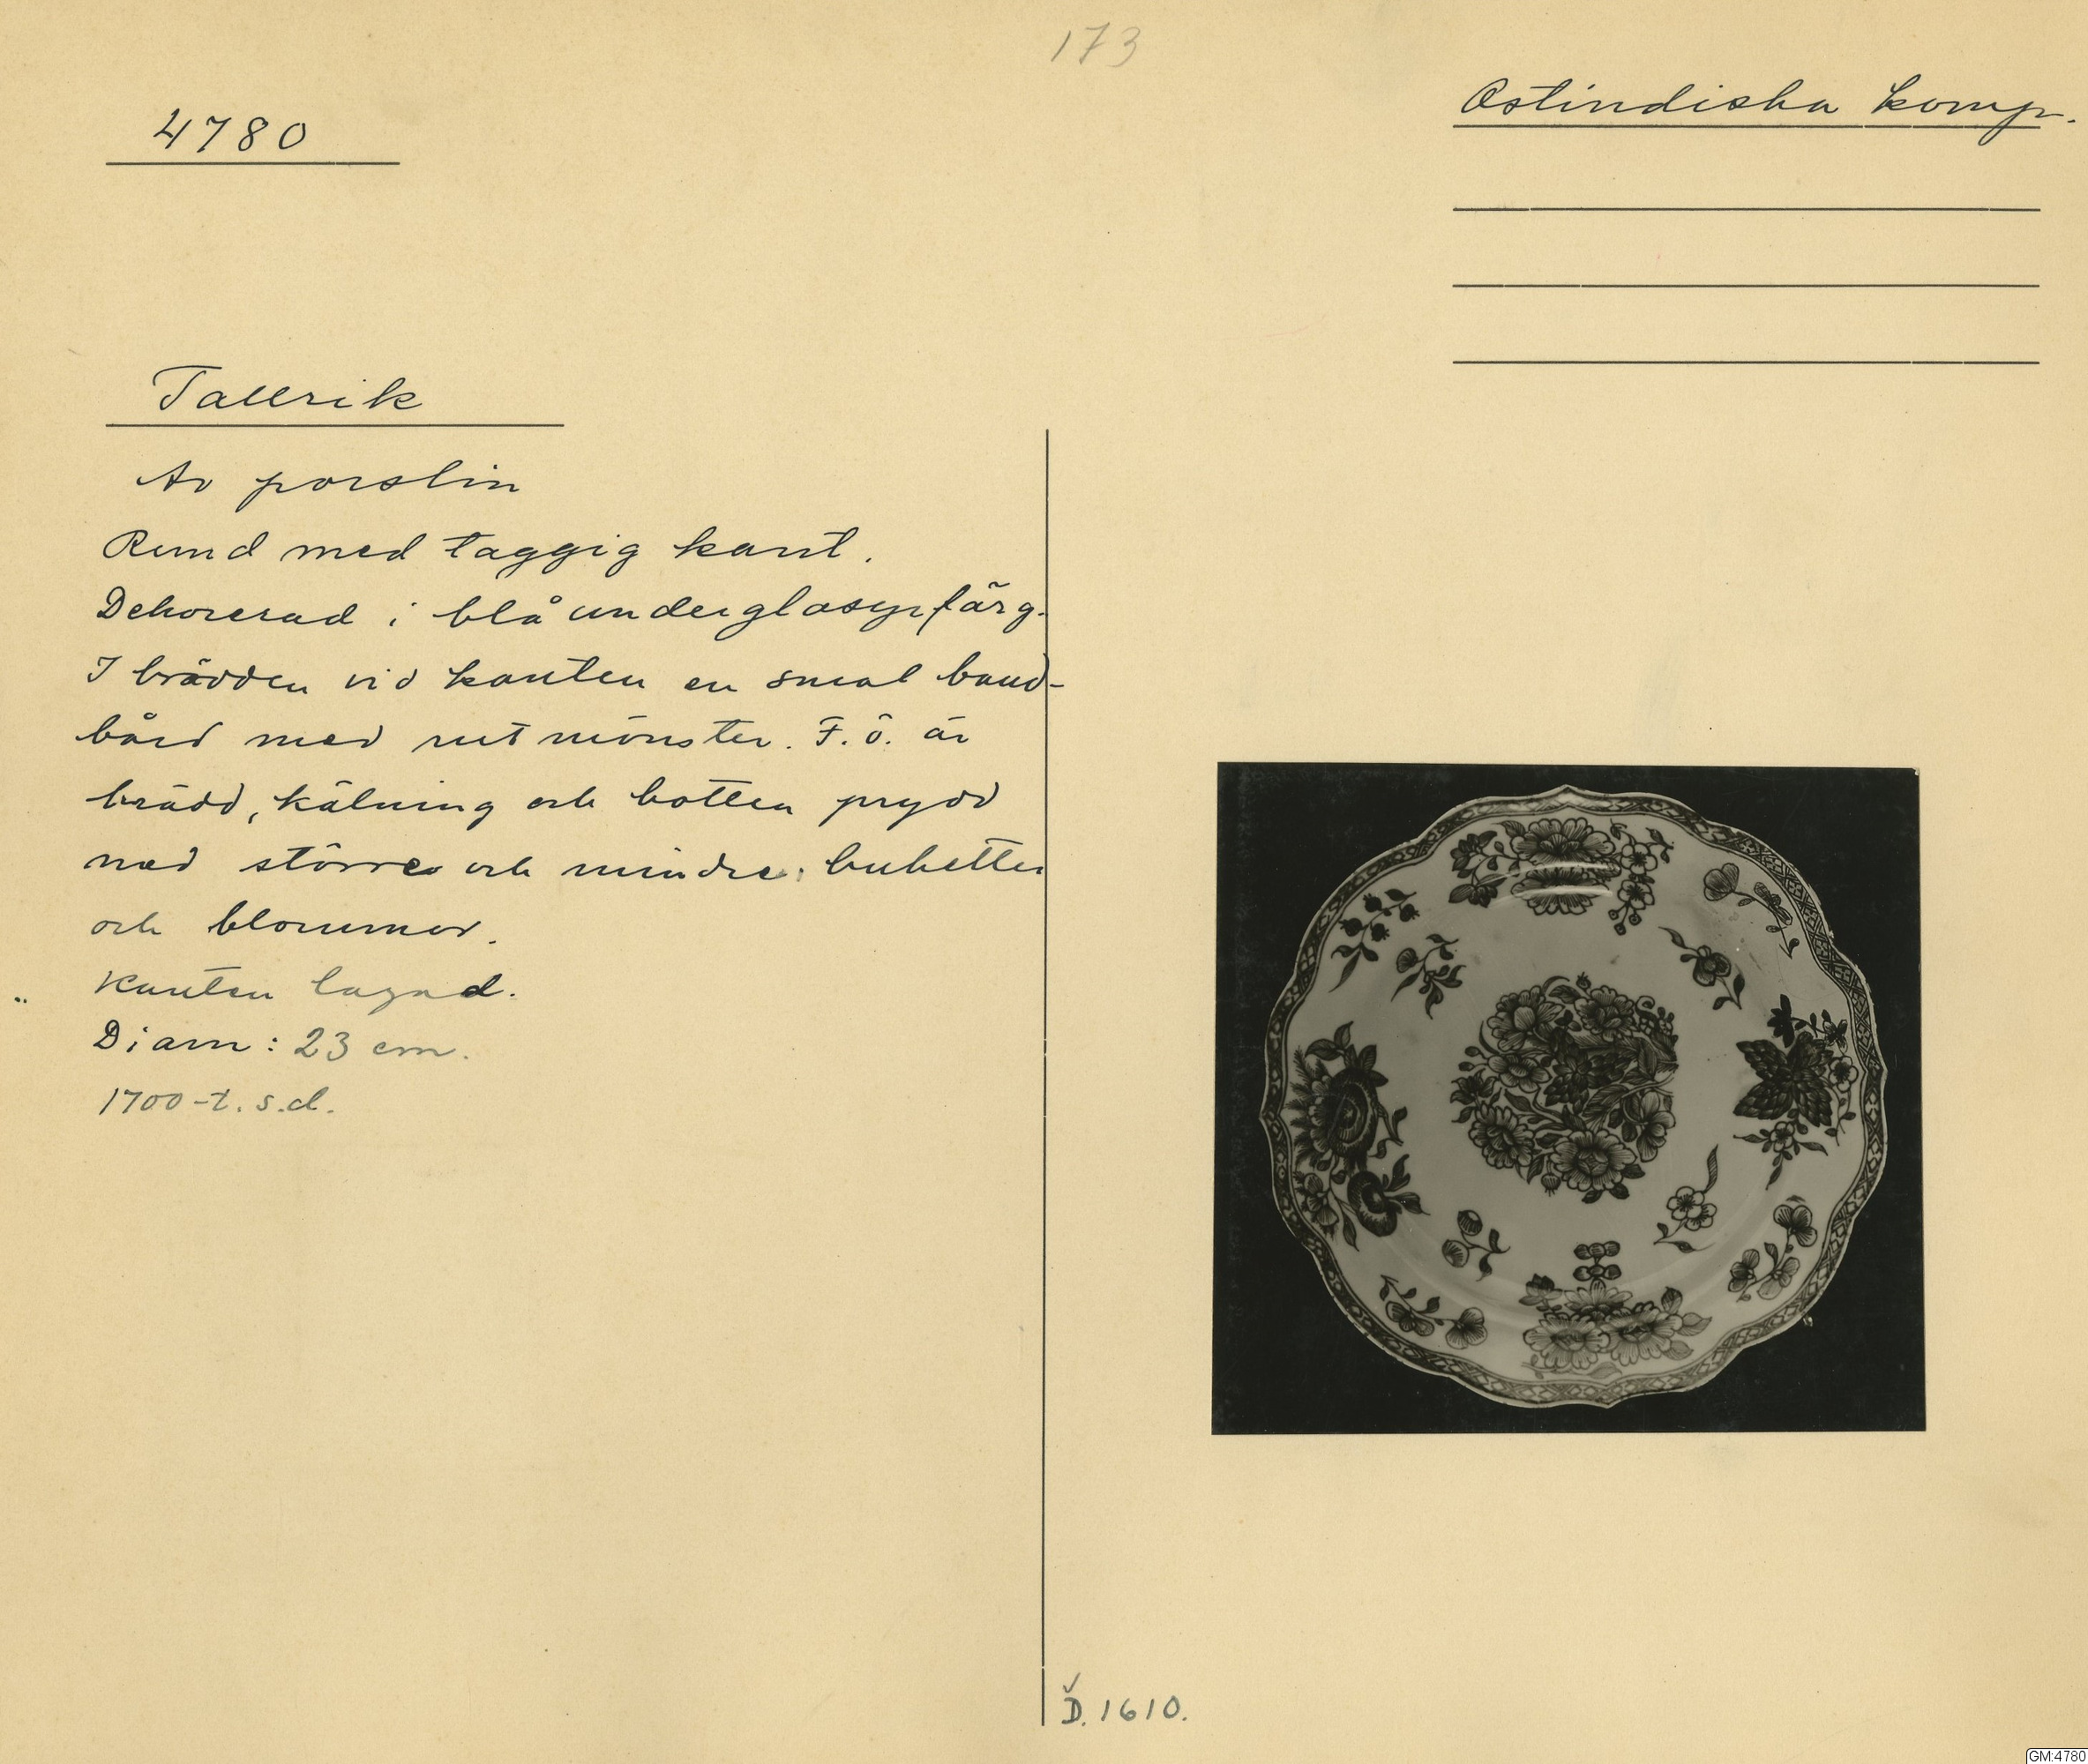 173
4780
Ostindiska komp.
Tallrik
Av porslin
Rund med taggig kant.
Dekorerad i blå underglasyrfärg.
I brädden vid kanten en smal band-
bård med rutmönster. F.ö. är
brädd, kälning och botten prydd
med större och mindre buketter
och blommor.
Kanten lagad.
Diam: 23 cm.
1700-t. s.d.
D. 1610.
GM:4780